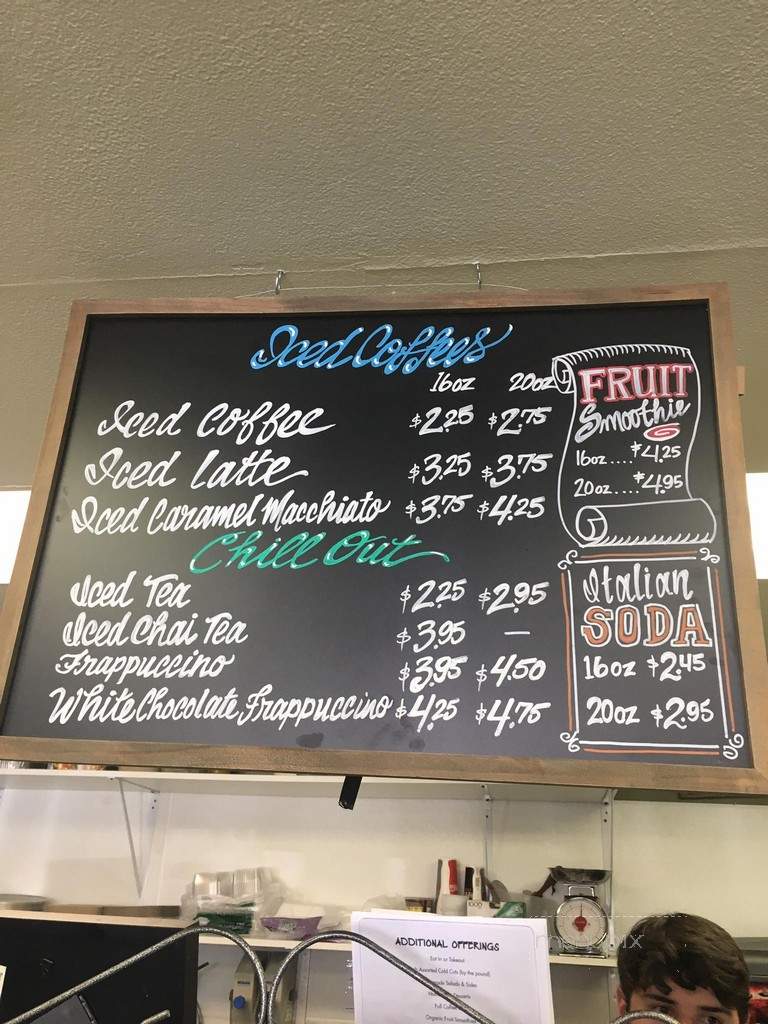 Iced Coffees
16oz 20oz
Iced Coffee $2.25 $2.75
Iced Latte $3.25 $3.75
Iced Caramel Macchiato $3.75 $4.25
Chill Out
Iced Tea $2.25 $2.95
Iced Chai Tea $3.95 —
Frappuccino $3.95 $4.50
White Chocolate Frappuccino $4.25 $4.75
FRUIT
Smoothie
16oz....$4.25
20oz....$4.95
Italian
SODA
16oz $2.45
20oz $2.95
ADDITIONAL OFFERINGS
Eat in or Takeout
Assorted Cold Cuts (by the pound)
Salads & Sides
Desserts
Full
Organic Fruit Smoothies